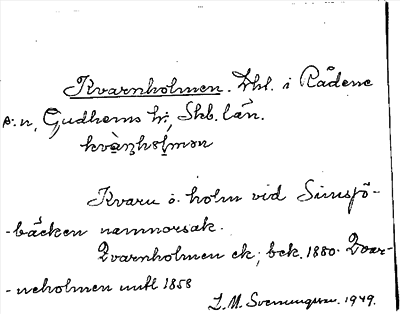 Kvarnholmen. Lht. i Rådene
s:n, Gudhems hd, Skb. län.
kvàɳhol̥mən
Kvarn o. holm vid Simsjö-
-bäcken namnorsak.
Qvarnholmen ek; bek. 1880. Qvar-
-neholmen mtl 1858
L. M. Svenungsson. 1949.